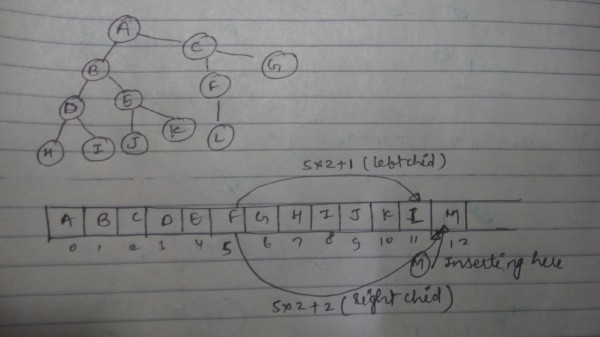 A
C
G
B
F
D
E
H
I
J
K
L
5x2+1 (left chid)
A B C D E F G H I J K I M
0 1 2 3 4 5 6 7 8 9 10 11 12
M Inserting here
5x2+2 (right chid)